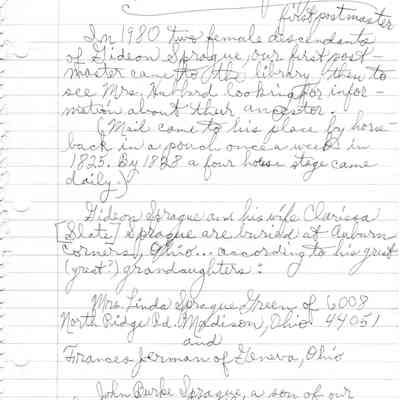 first postmaster
In 1980 two female descendants
of Gideon Sprague, our first post-
master came to the library then to
see Mrs. Hubbard looking for infor-
mation about their ancestor.
(Mail came to his place by horse-
back in a pouch once a week in
1825. By 1828 a four horse stage came
daily.)
Gideon Sprague and his wife Clarissa
[Slate] Sprague are buried at Auburn
Corners, Ohio... according to his great
(great?) grandaughters:
Mrs. Linda Sprague Green of 6008
North Ridge Rd. Madison, Ohio 44051
and
Frances Jerman of Geneva, Ohio
John Burke Sprague, a son of our